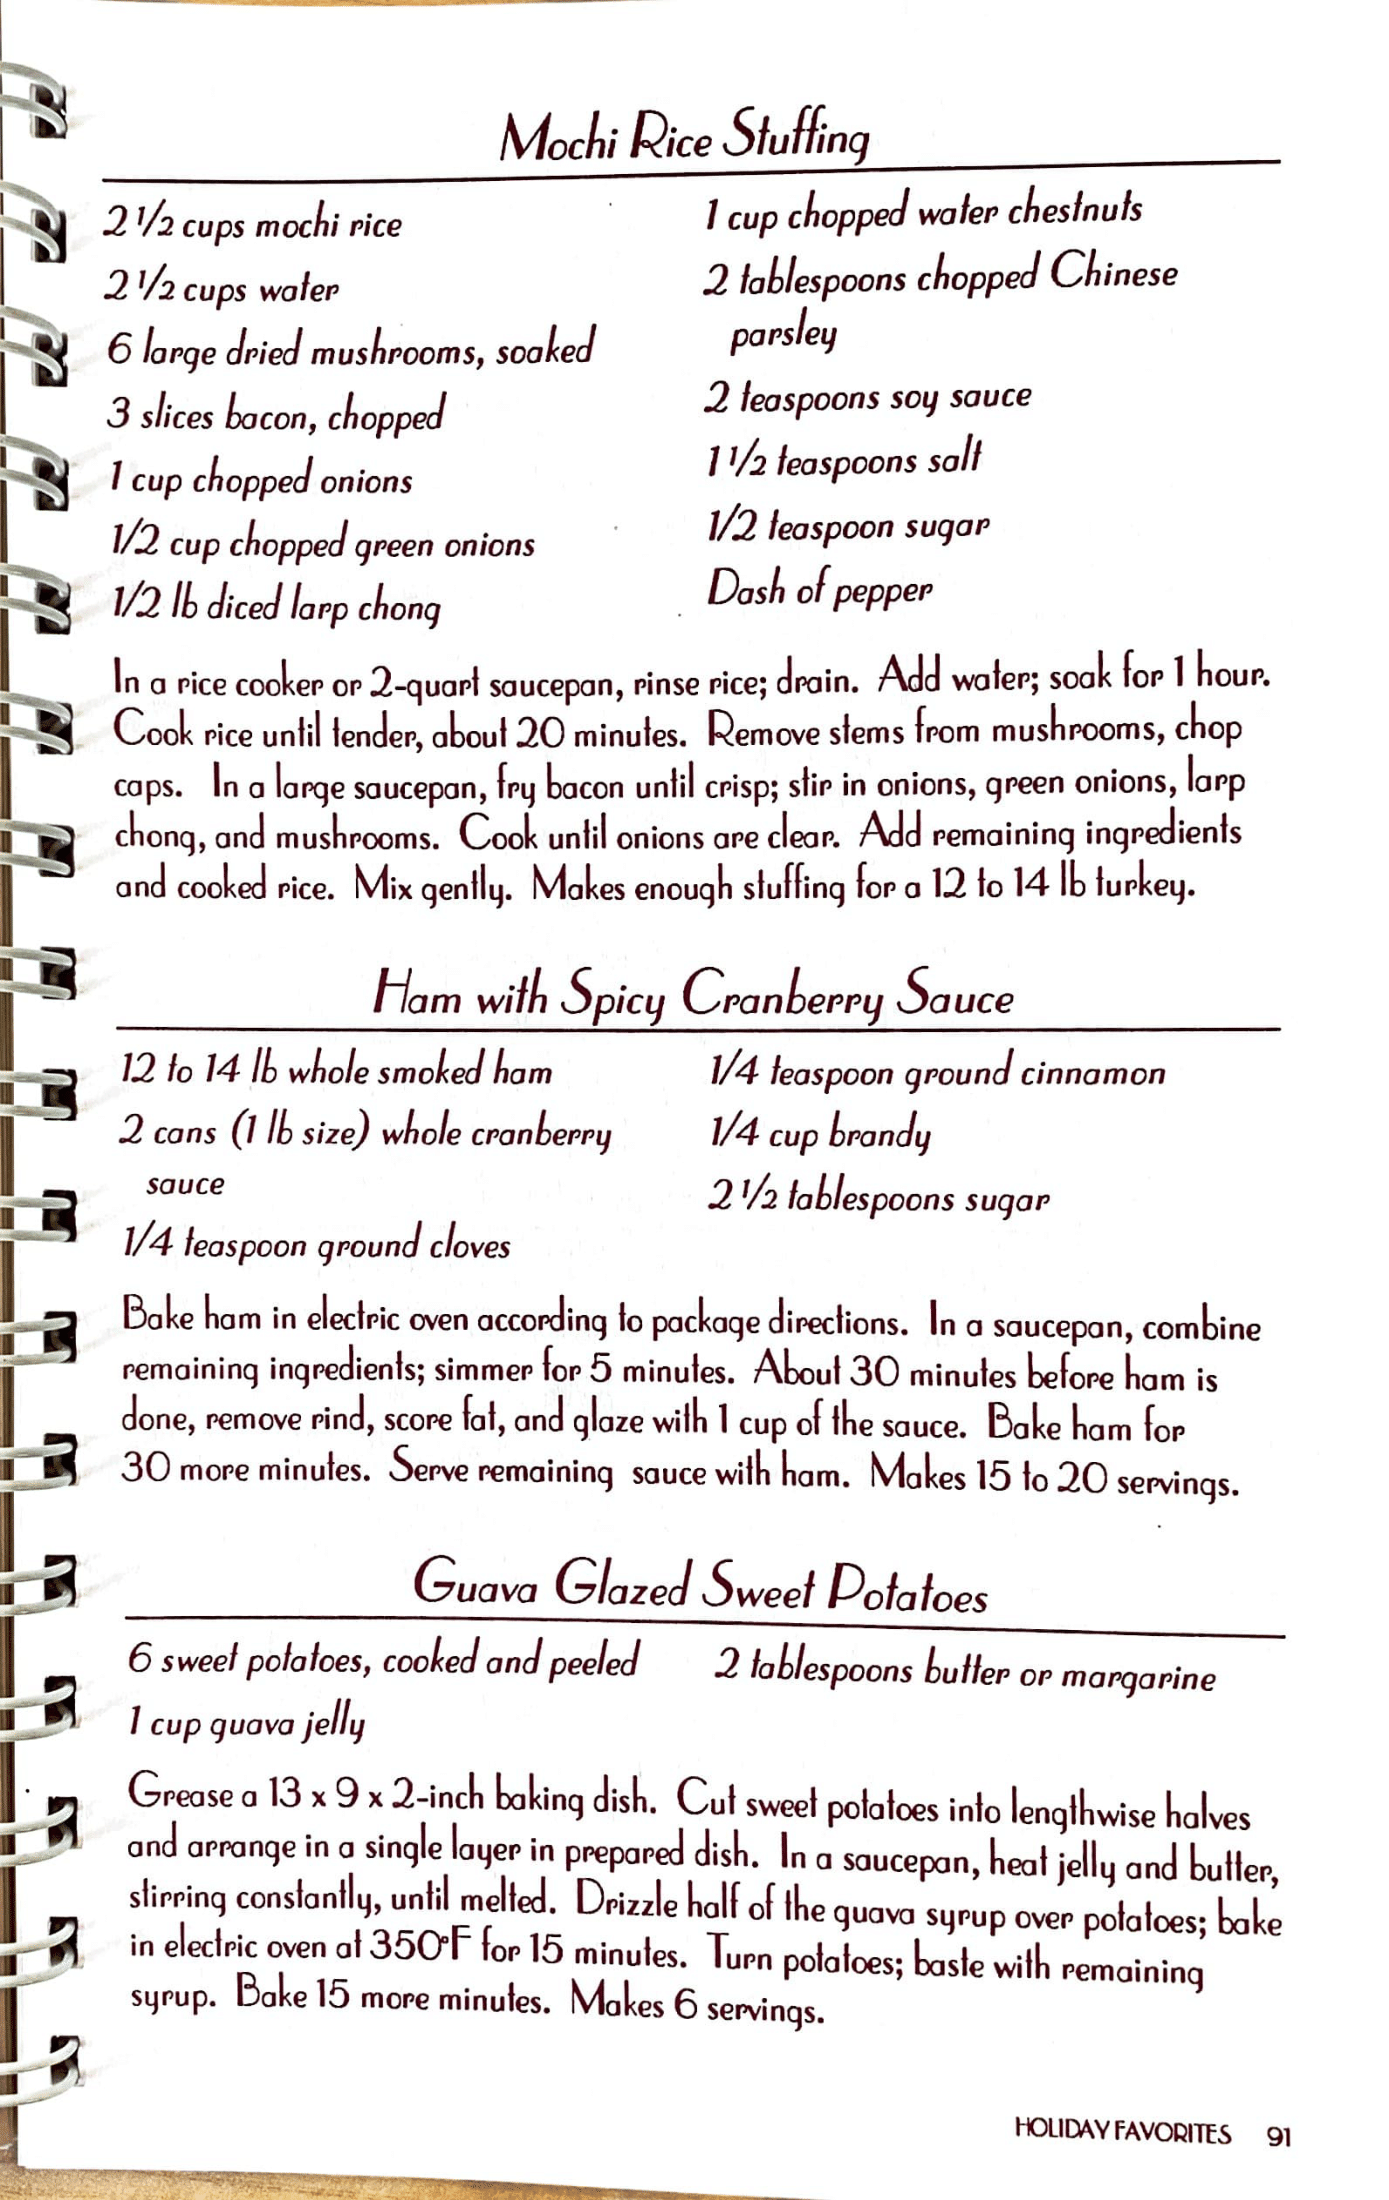 Mochi Rice Stuffing
2 1/2 cups mochi rice
2 1/2 cups water
6 large dried mushrooms, soaked
3 slices bacon, chopped
1 cup chopped onions
1/2 cup chopped green onions
1/2 lb diced larp chong
1 cup chopped water chestnuts
2 tablespoons chopped Chinese
parsley
2 teaspoons soy sauce
1 1/2 teaspoons salt
1/2 teaspoon sugar
Dash of pepper
In a rice cooker or 2-quart saucepan, rinse rice; drain. Add water; soak for 1 hour.
Cook rice until tender, about 20 minutes. Remove stems from mushrooms, chop
caps. In a large saucepan, fry bacon until crisp; stir in onions, green onions, larp
chong, and mushrooms. Cook until onions are clear. Add remaining ingredients
and cooked rice. Mix gently. Makes enough stuffing for a 12 to 14 lb turkey.
Ham with Spicy Cranberry Sauce
12 to 14 lb whole smoked ham
2 cans (1 lb size) whole cranberry
sauce
1/4 teaspoon ground cloves
1/4 teaspoon ground cinnamon
1/4 cup brandy
2 1/2 tablespoons sugar
Bake ham in electric oven according to package directions. In a saucepan, combine
remaining ingredients; simmer for 5 minutes. About 30 minutes before ham is
done, remove rind, score fat, and glaze with 1 cup of the sauce. Bake ham for
30 more minutes. Serve remaining sauce with ham. Makes 15 to 20 servings.
Guava Glazed Sweet Potatoes
6 sweet potatoes, cooked and peeled
1 cup guava jelly
2 tablespoons butter or margarine
Grease a 13 x 9 x 2-inch baking dish. Cut sweet potatoes into lengthwise halves
and arrange in a single layer in prepared dish. In a saucepan, heat jelly and butter,
stirring constantly, until melted. Drizzle half of the guava syrup over potatoes; bake
in electric oven at 350°F for 15 minutes. Turn potatoes; baste with remaining
syrup. Bake 15 more minutes. Makes 6 servings.
HOLIDAY FAVORITES 91